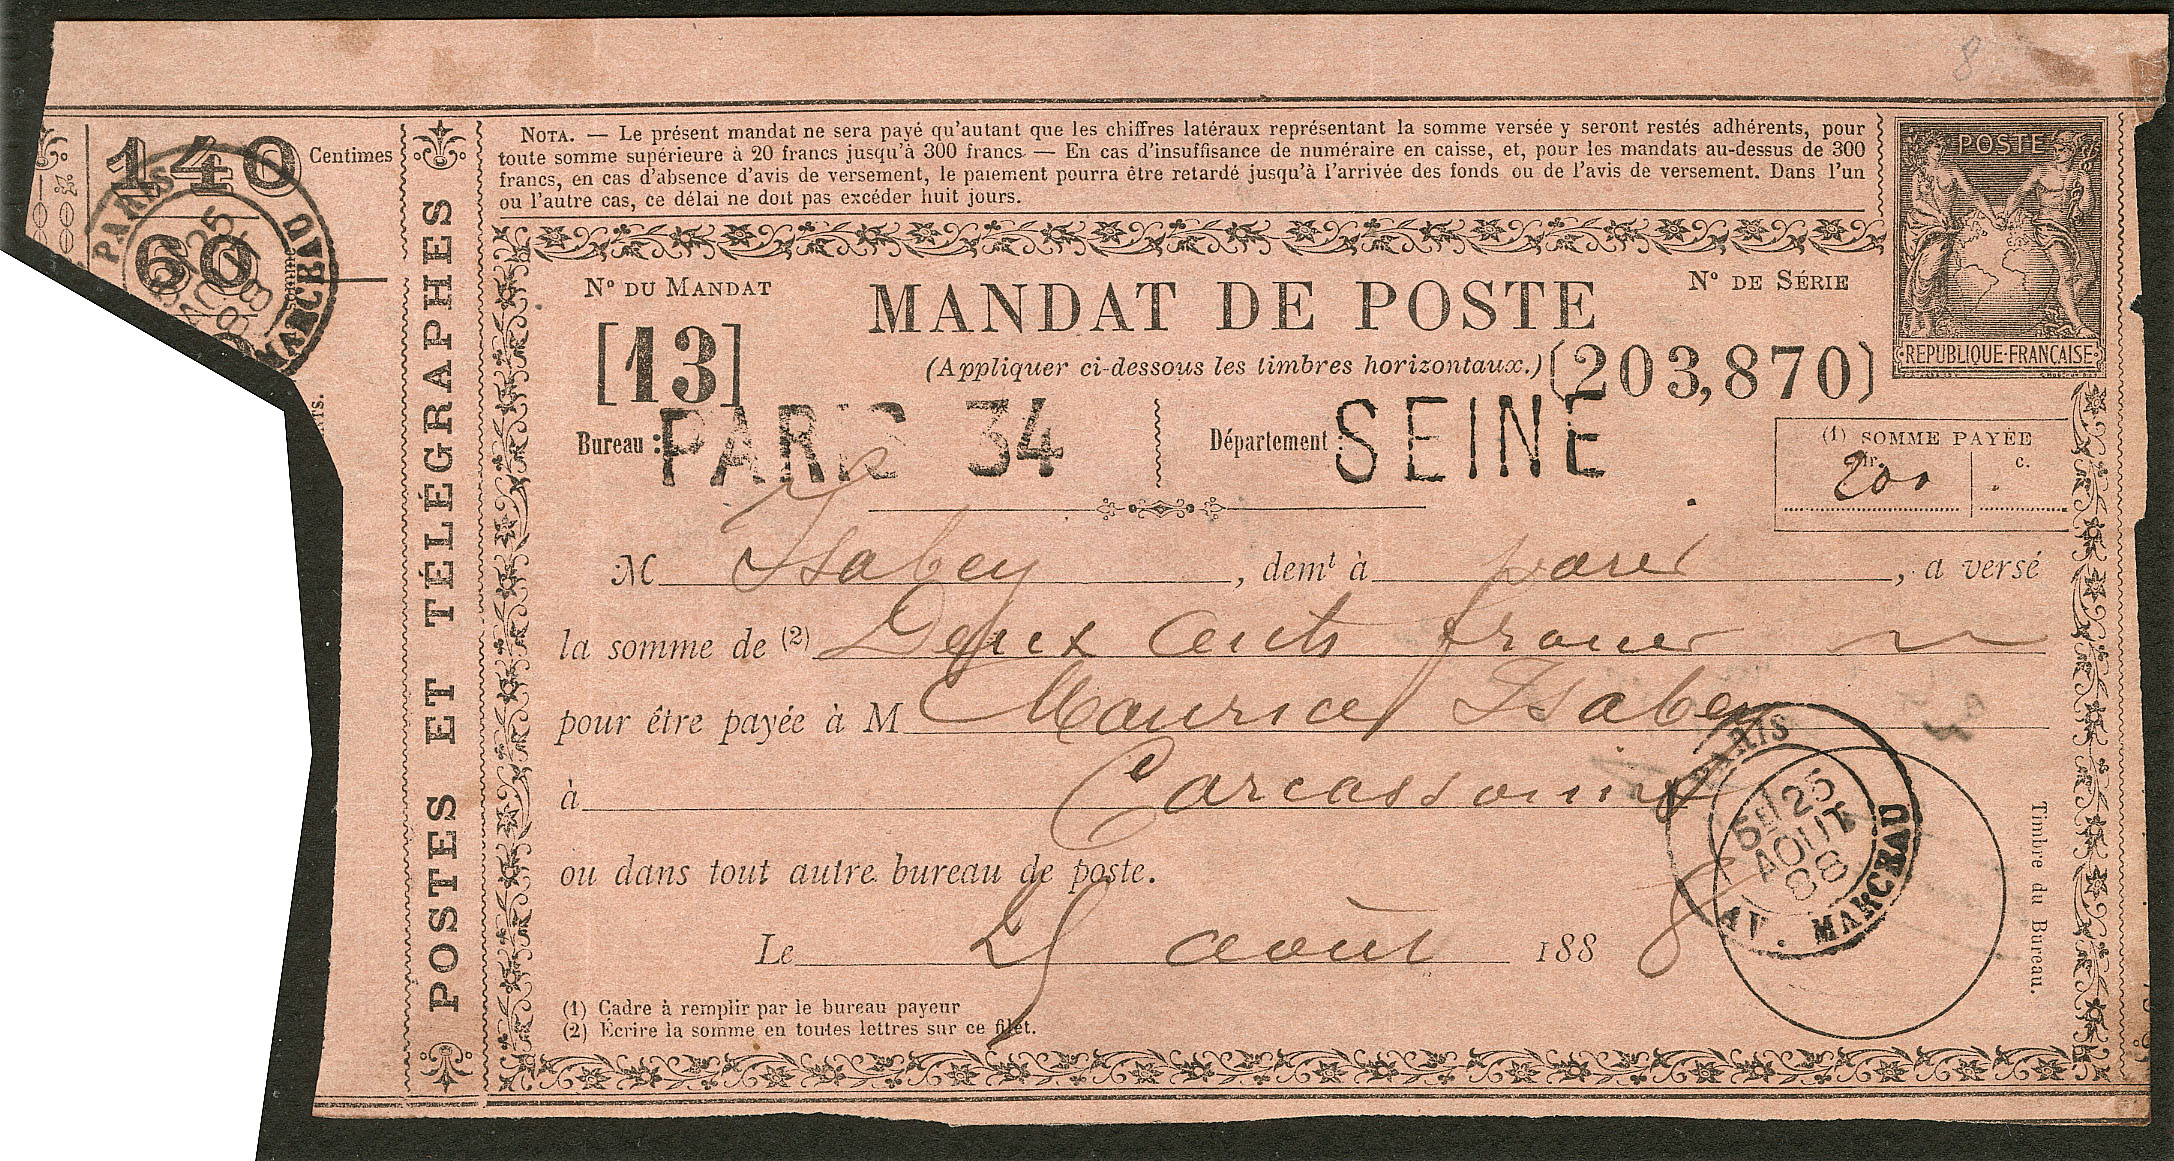 8
NOTA. — Le présent mandat ne sera payé qu'autant que les chiffres latéraux représentant la somme versée y seront restés adhérents, pour
toute somme supérieure à 20 francs jusqu'à 300 francs. — En cas d'insuffisance de numéraire en caisse, et, pour les mandats au-dessus de 300
francs, en cas d'absence d'avis de versement, le paiement pourra être retardé jusqu'à l'arrivée des fonds ou de l'avis de versement. Dans l'un
ou l'autre cas, ce délai ne doit pas excéder huit jours.
POSTE
REPUBLIQUE FRANÇAISE
140 Centimes
60
PARIS
25
MARCEAU
POSTES ET TÉLÉGRAPHES
N° DU MANDAT
[13]
MANDAT DE POSTE
N° DE SÉRIE
(Appliquer ci-dessous les timbres horizontaux.)
(203,870)
Bureau : PARIS 34
Département : SEINE
(1) SOMME PAYÉE
fr. c.
200
M Isabey, demt à Paris, a versé
la somme de (2) Deux cents francs
pour être payée à M Maurice Isabey
à Carcassonne
ou dans tout autre bureau de poste.
Le 25 août 1888
PARIS
5E 25
AOUT
88
AV. MARCEAU
Timbre du Bureau.
(1) Cadre à remplir par le bureau payeur
(2) Écrire la somme en toutes lettres sur ce filet.